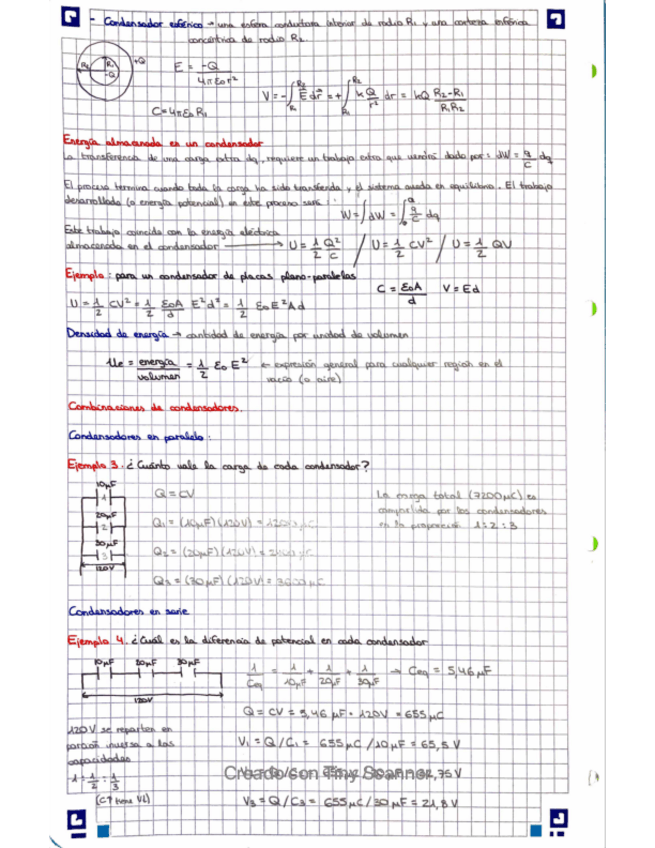 - Condensador esférico → una esfera conductora interior de radio R₁ y una corteza esférica
concéntrica de radio R₂.
+Q
R₂ R₁
-Q
E = -Q / 4πε₀r²
V = -∫_{R₁}^{R₂} E⃗ dr⃗ = +∫_{R₁}^{R₂} kQ/r² dr = kQ (R₂-R₁)/(R₁R₂)
C=4πε₀R₁
Energía almacenada en un condensador
La transferencia de una carga extra dq, requiere un trabajo extra que vendrá dado por: dW = q/C dq
El proceso termina cuando toda la carga ha sido transferida y el sistema queda en equilibrio. El trabajo
desarrollado (o energía potencial) en este proceso será:
W = ∫dW = ∫₀^Q q/C dq
Este trabajo coincide con la energía eléctrica
almacenada en el condensador → U = 1/2 Q²/C / U = 1/2 CV² / U = 1/2 QV
Ejemplo: para un condensador de placas plano-paralelas
C = ε₀A/d V = Ed
U = 1/2 CV² = 1/2 ε₀A/d E²d² = 1/2 ε₀E²Ad
Densidad de energía → cantidad de energía por unidad de volumen
Ue = energía/volumen = 1/2 ε₀ E² ← expresión general para cualquier región en el
vacío (o aire)
Combinaciones de condensadores.
Condensadores en paralelo:
Ejemplo 3. ¿Cuánto vale la carga de cada condensador?
10μF
1
20μF
2
30μF
3
120V
Q = CV
Q₁ = (10μF)(120V) = 1200μC
Q₂ = (20μF)(120V) = 2400μC
Q₃ = (30μF)(120V) = 3600μC
La carga total (7200μC) es
compartida por los condensadores
en la proporción 1:2:3
Condensadores en serie
Ejemplo 4. ¿Cuál es la diferencia de potencial en cada condensador
10μF 20μF 30μF
120V
1/Ceq = 1/10μF + 1/20μF + 1/30μF → Ceq = 5,46μF
Q = CV = 5,46 μF · 120V = 655μC
120V se reparten en
porción inversa a las
capacidades
1 : 1/2 : 1/3
(C↑ tiene V↓)
V₁ = Q/C₁ = 655μC/10μF = 65,5 V
Creado con Tiny Scanner
V₃ = Q/C₃ = 655μC/30μF = 21,8V